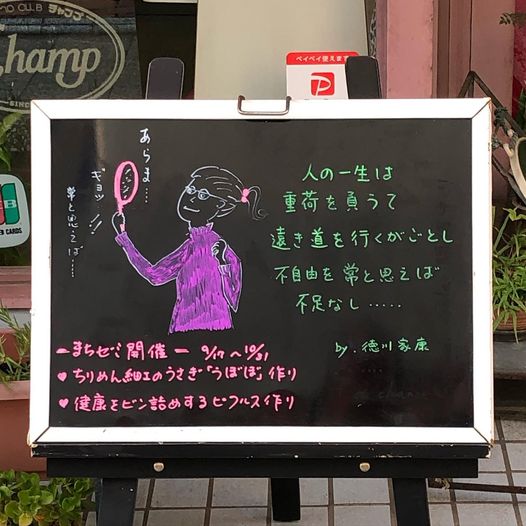 Champ
SINC
ペイペイ使えます
P
JCB CARDS
あらま…
ギョッ!!
常と思えば……
人の一生は
重荷を負うて
遠き道を行くがごとし
不自由を常と思えば
不足なし……
by. 徳川家康
ーまちゼミ開催ー 9/17〜10/31
♥ちりめん細工のうさぎ「うぼぼ」作り
♥健康をビン詰めするピクルス作り